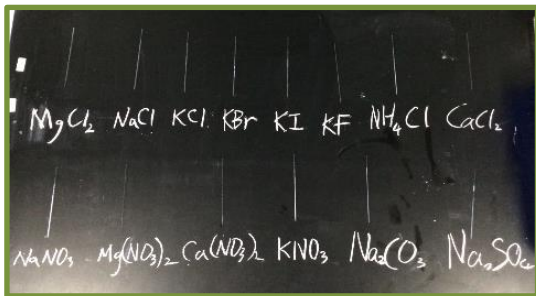 MgCl₂ NaCl KCl KBr KI KF NH₄Cl CaCl₂
NaNO₃ Mg(NO₃)₂ Ca(NO₃)₂ KNO₃ Na₂CO₃ Na₂SO₄